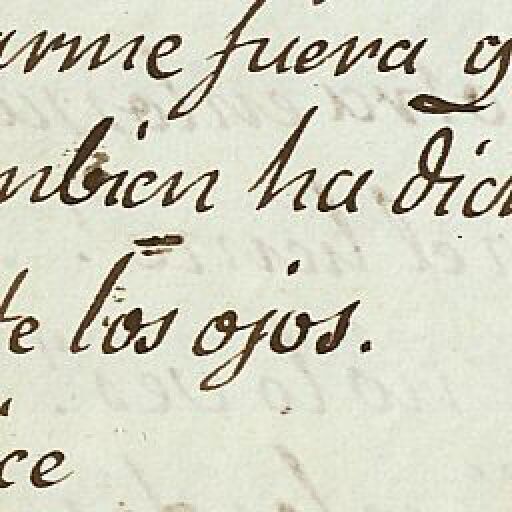 arme fuera q
mbien ha dic
te los ojos.
ce